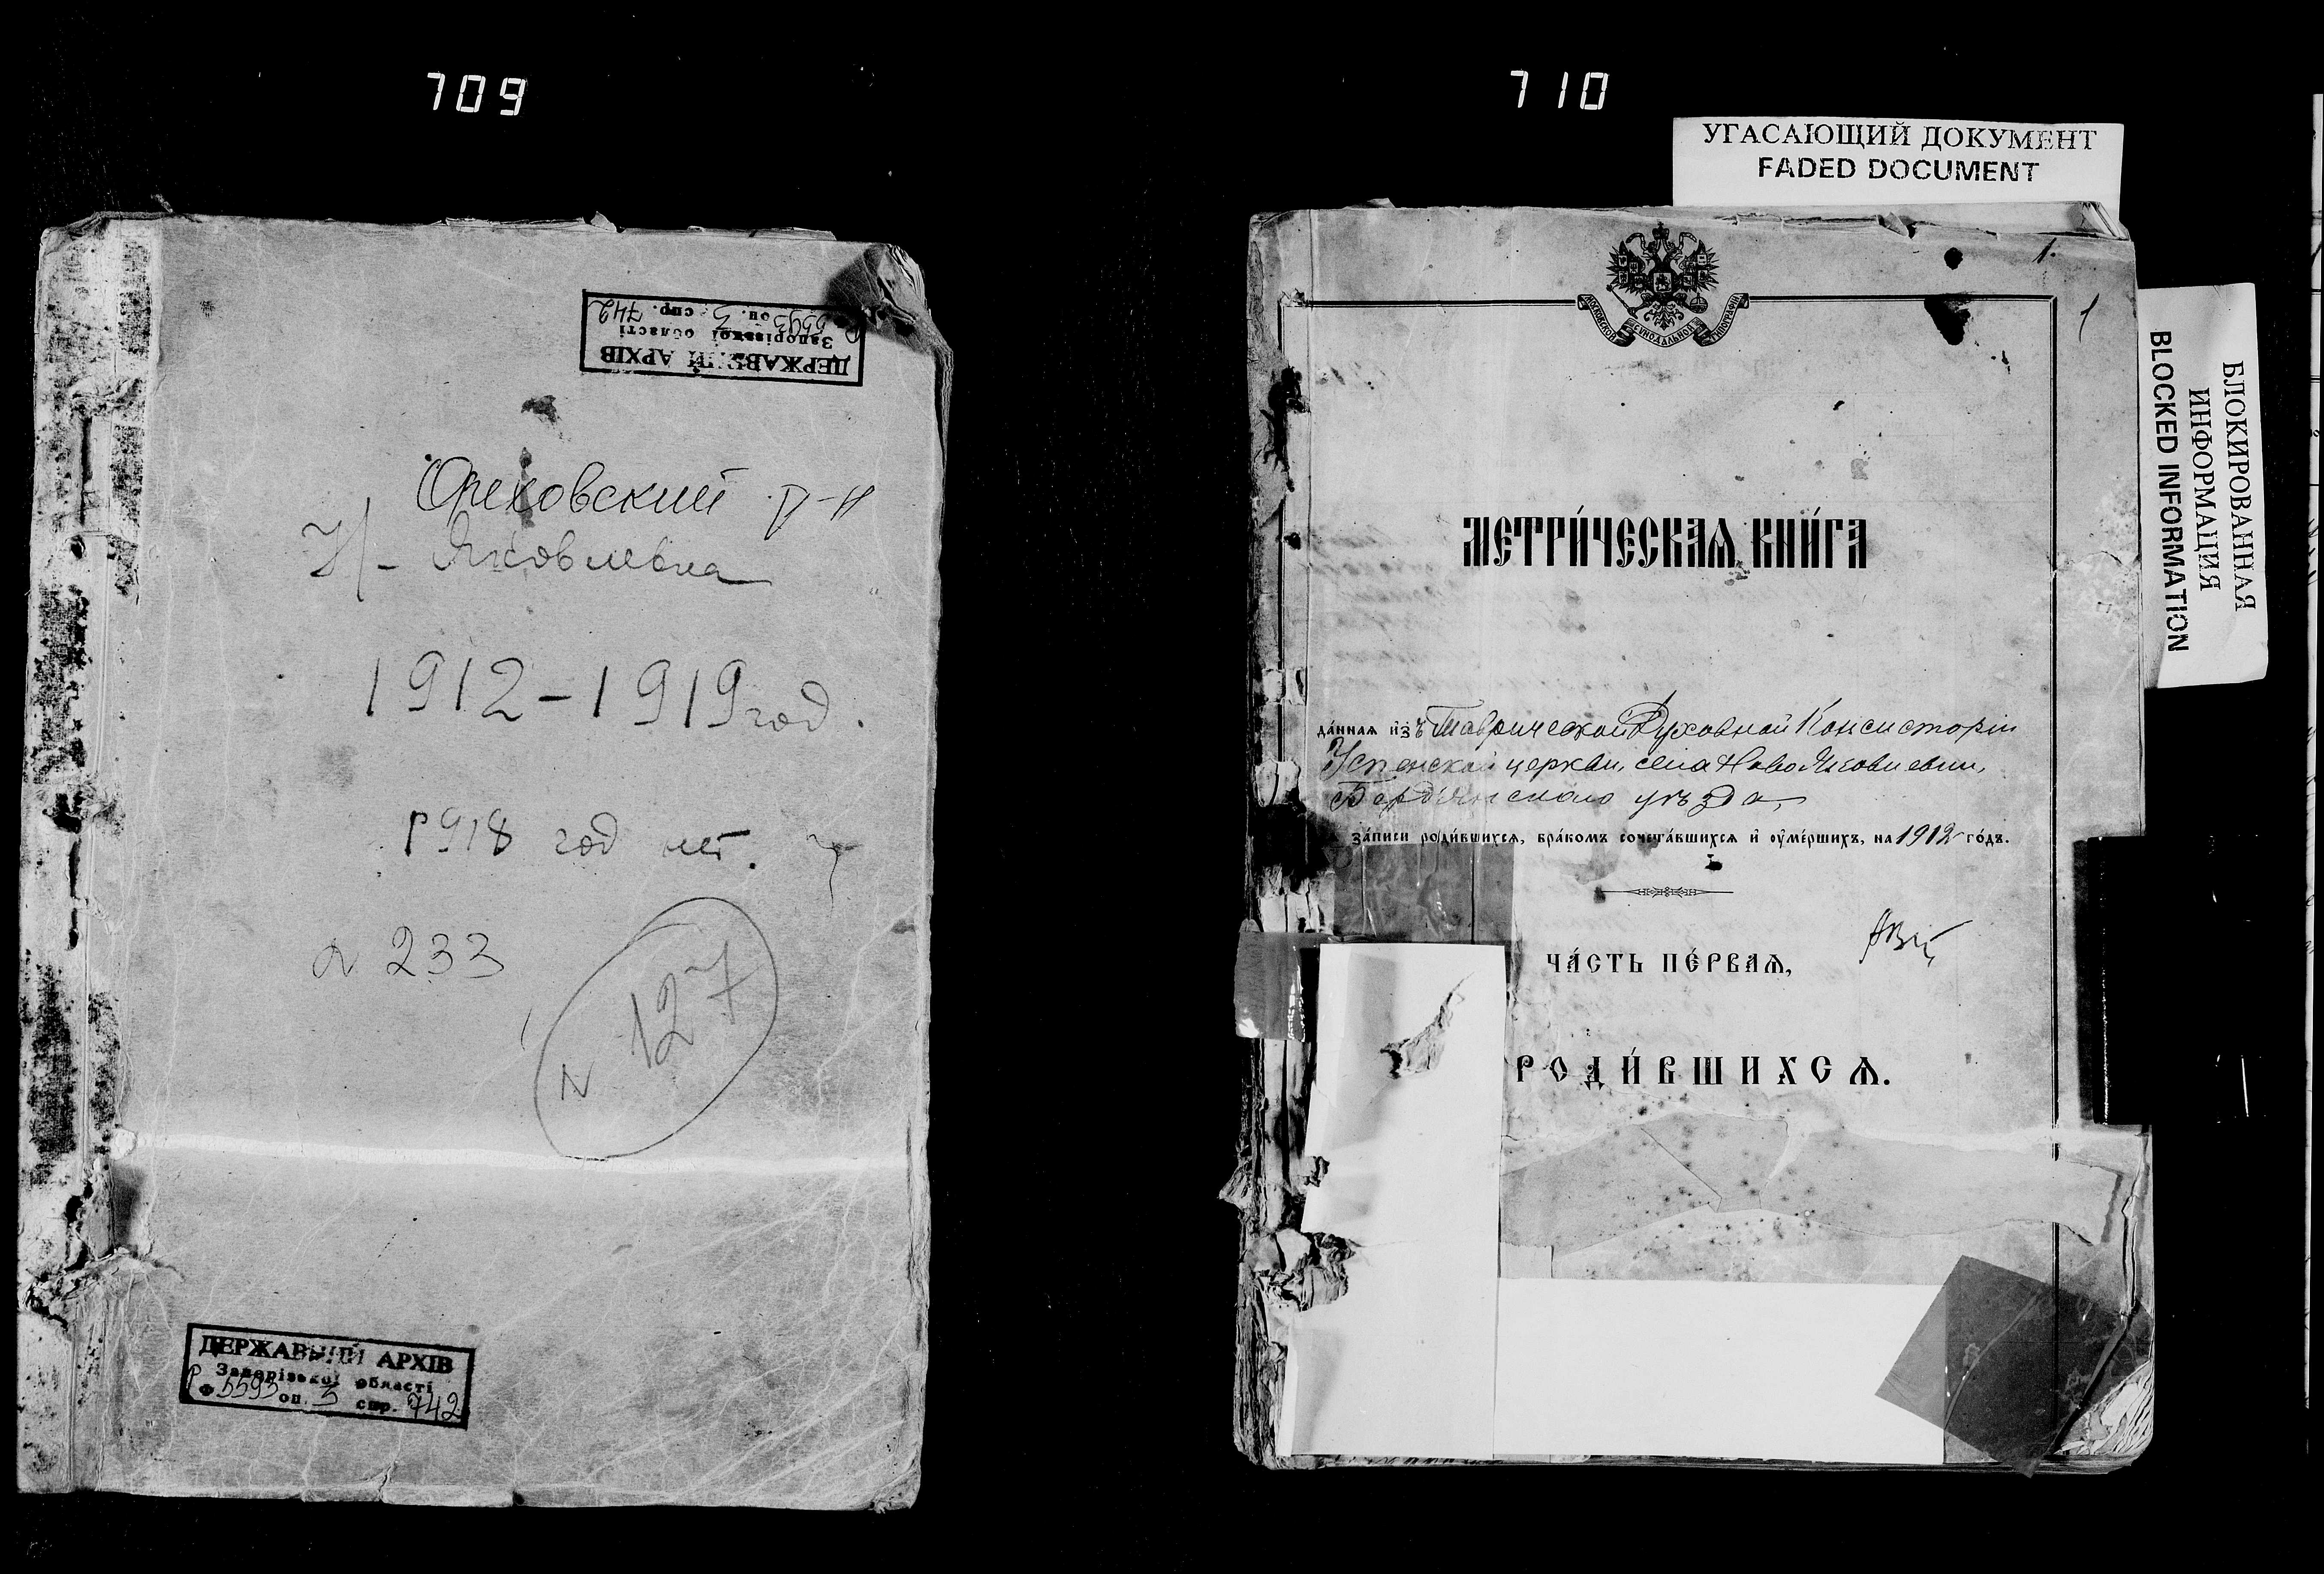 709
ДЕРЖАВНИЙ АРХІВ
Запорізької області
Р. 5593 оп. 3 спр. 742
Ореховский р-н
Н/- Яковлевка
1912-1919 год.
1918 год нет.
N 233
N 127
ДЕРЖАВНИЙ АРХІВ
Запорізької області
Р ф 5593 оп. 3 спр. 742
710
УГАСАЮЩИЙ ДОКУМЕНТ
FADED DOCUMENT
БЛОКИРОВАННАЯ
ИНФОРМАЦИЯ
BLOCKED INFORMATION
1.
1
МОСКОВСКОЙ СѴНОДАЛЬНОЙ ТИПОГРАФІИ
МЕТРИ́ЧЕСКАѦ КНИ́ГА
да́нная и҆зъ Таврической Духовной Консисторіи
Успенской церкви, села Ново Яковлевки,
Бердянского уѣзда,
за́писи роди́вшихся, бра́комъ сочета́вшихся и҆ оуме́ршихъ, на 1912 го́дъ.
ЧА́СТЬ ПЕ́РВАѦ,
РОДИ́ВШИХСѦ.